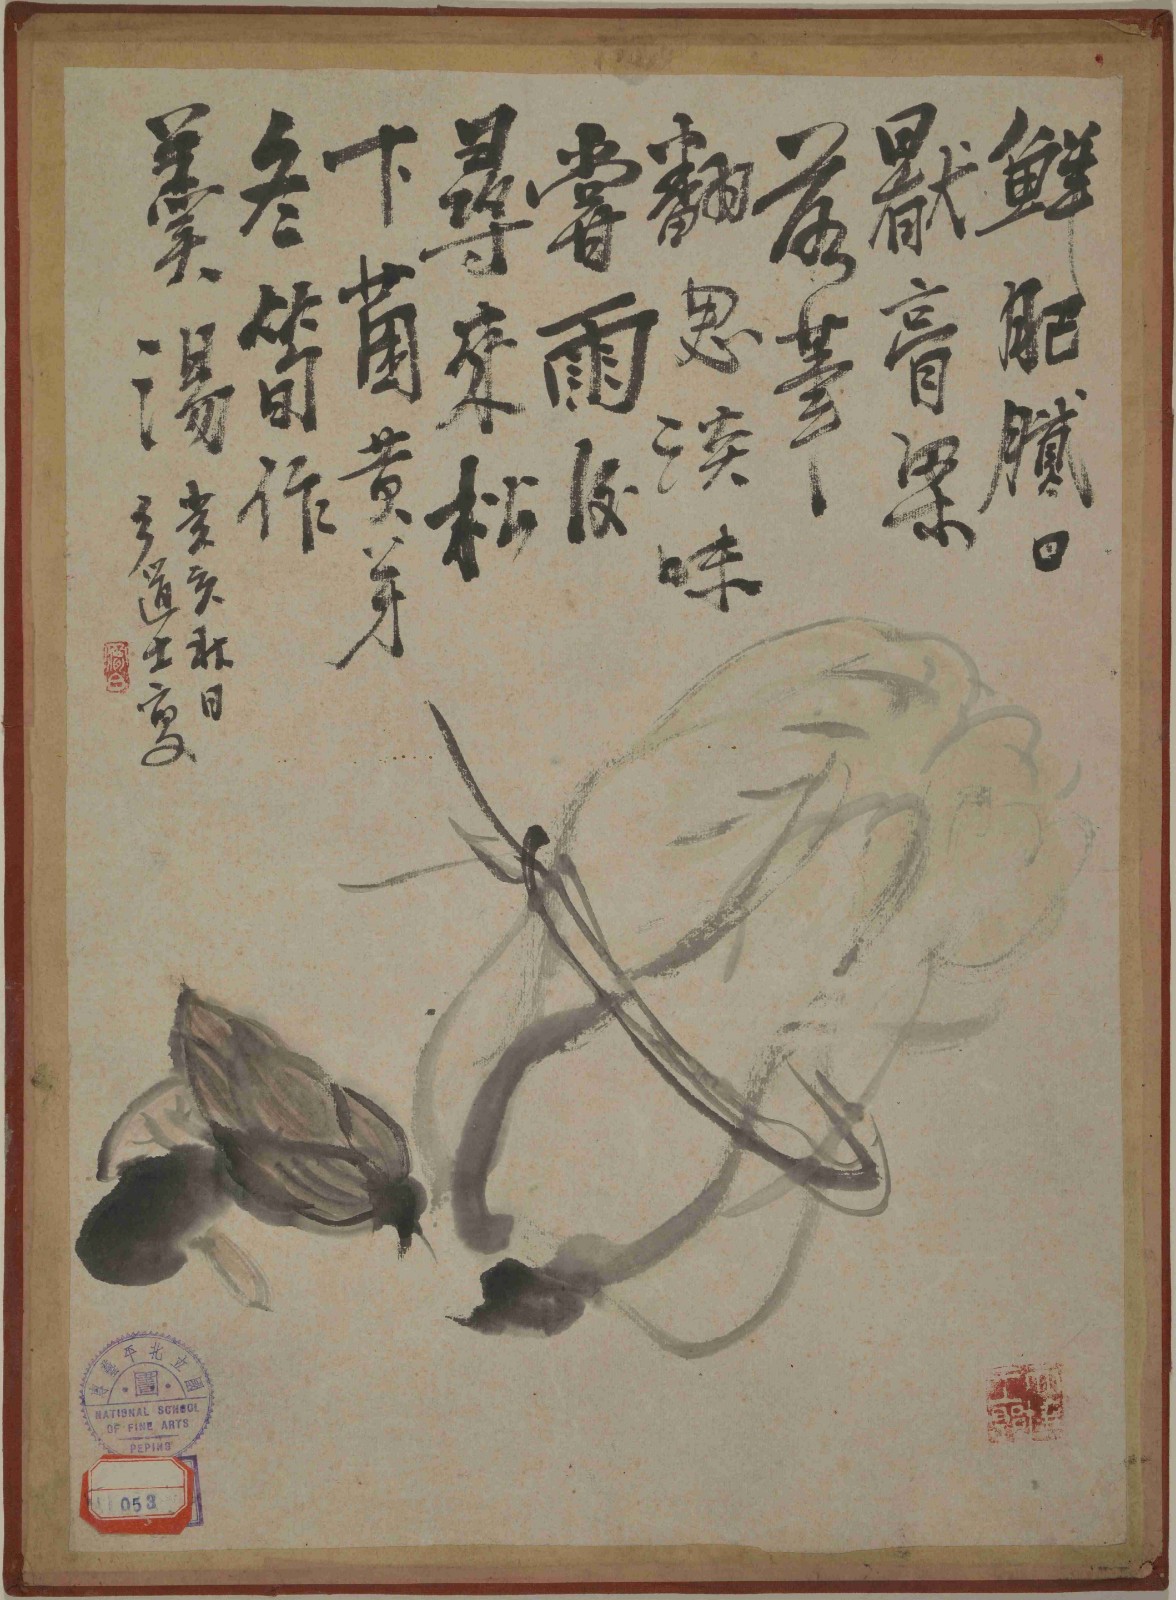 鮮肥膩口
厭膏粱
落筆
翻思淡味
嘗雨後
尋來松
下菌黃芽
冬筍作
羹湯
癸亥秋日
道士寫
國立北平藝
NATIONAL SCHOOL
OF FINE ARTS
PEPING
053